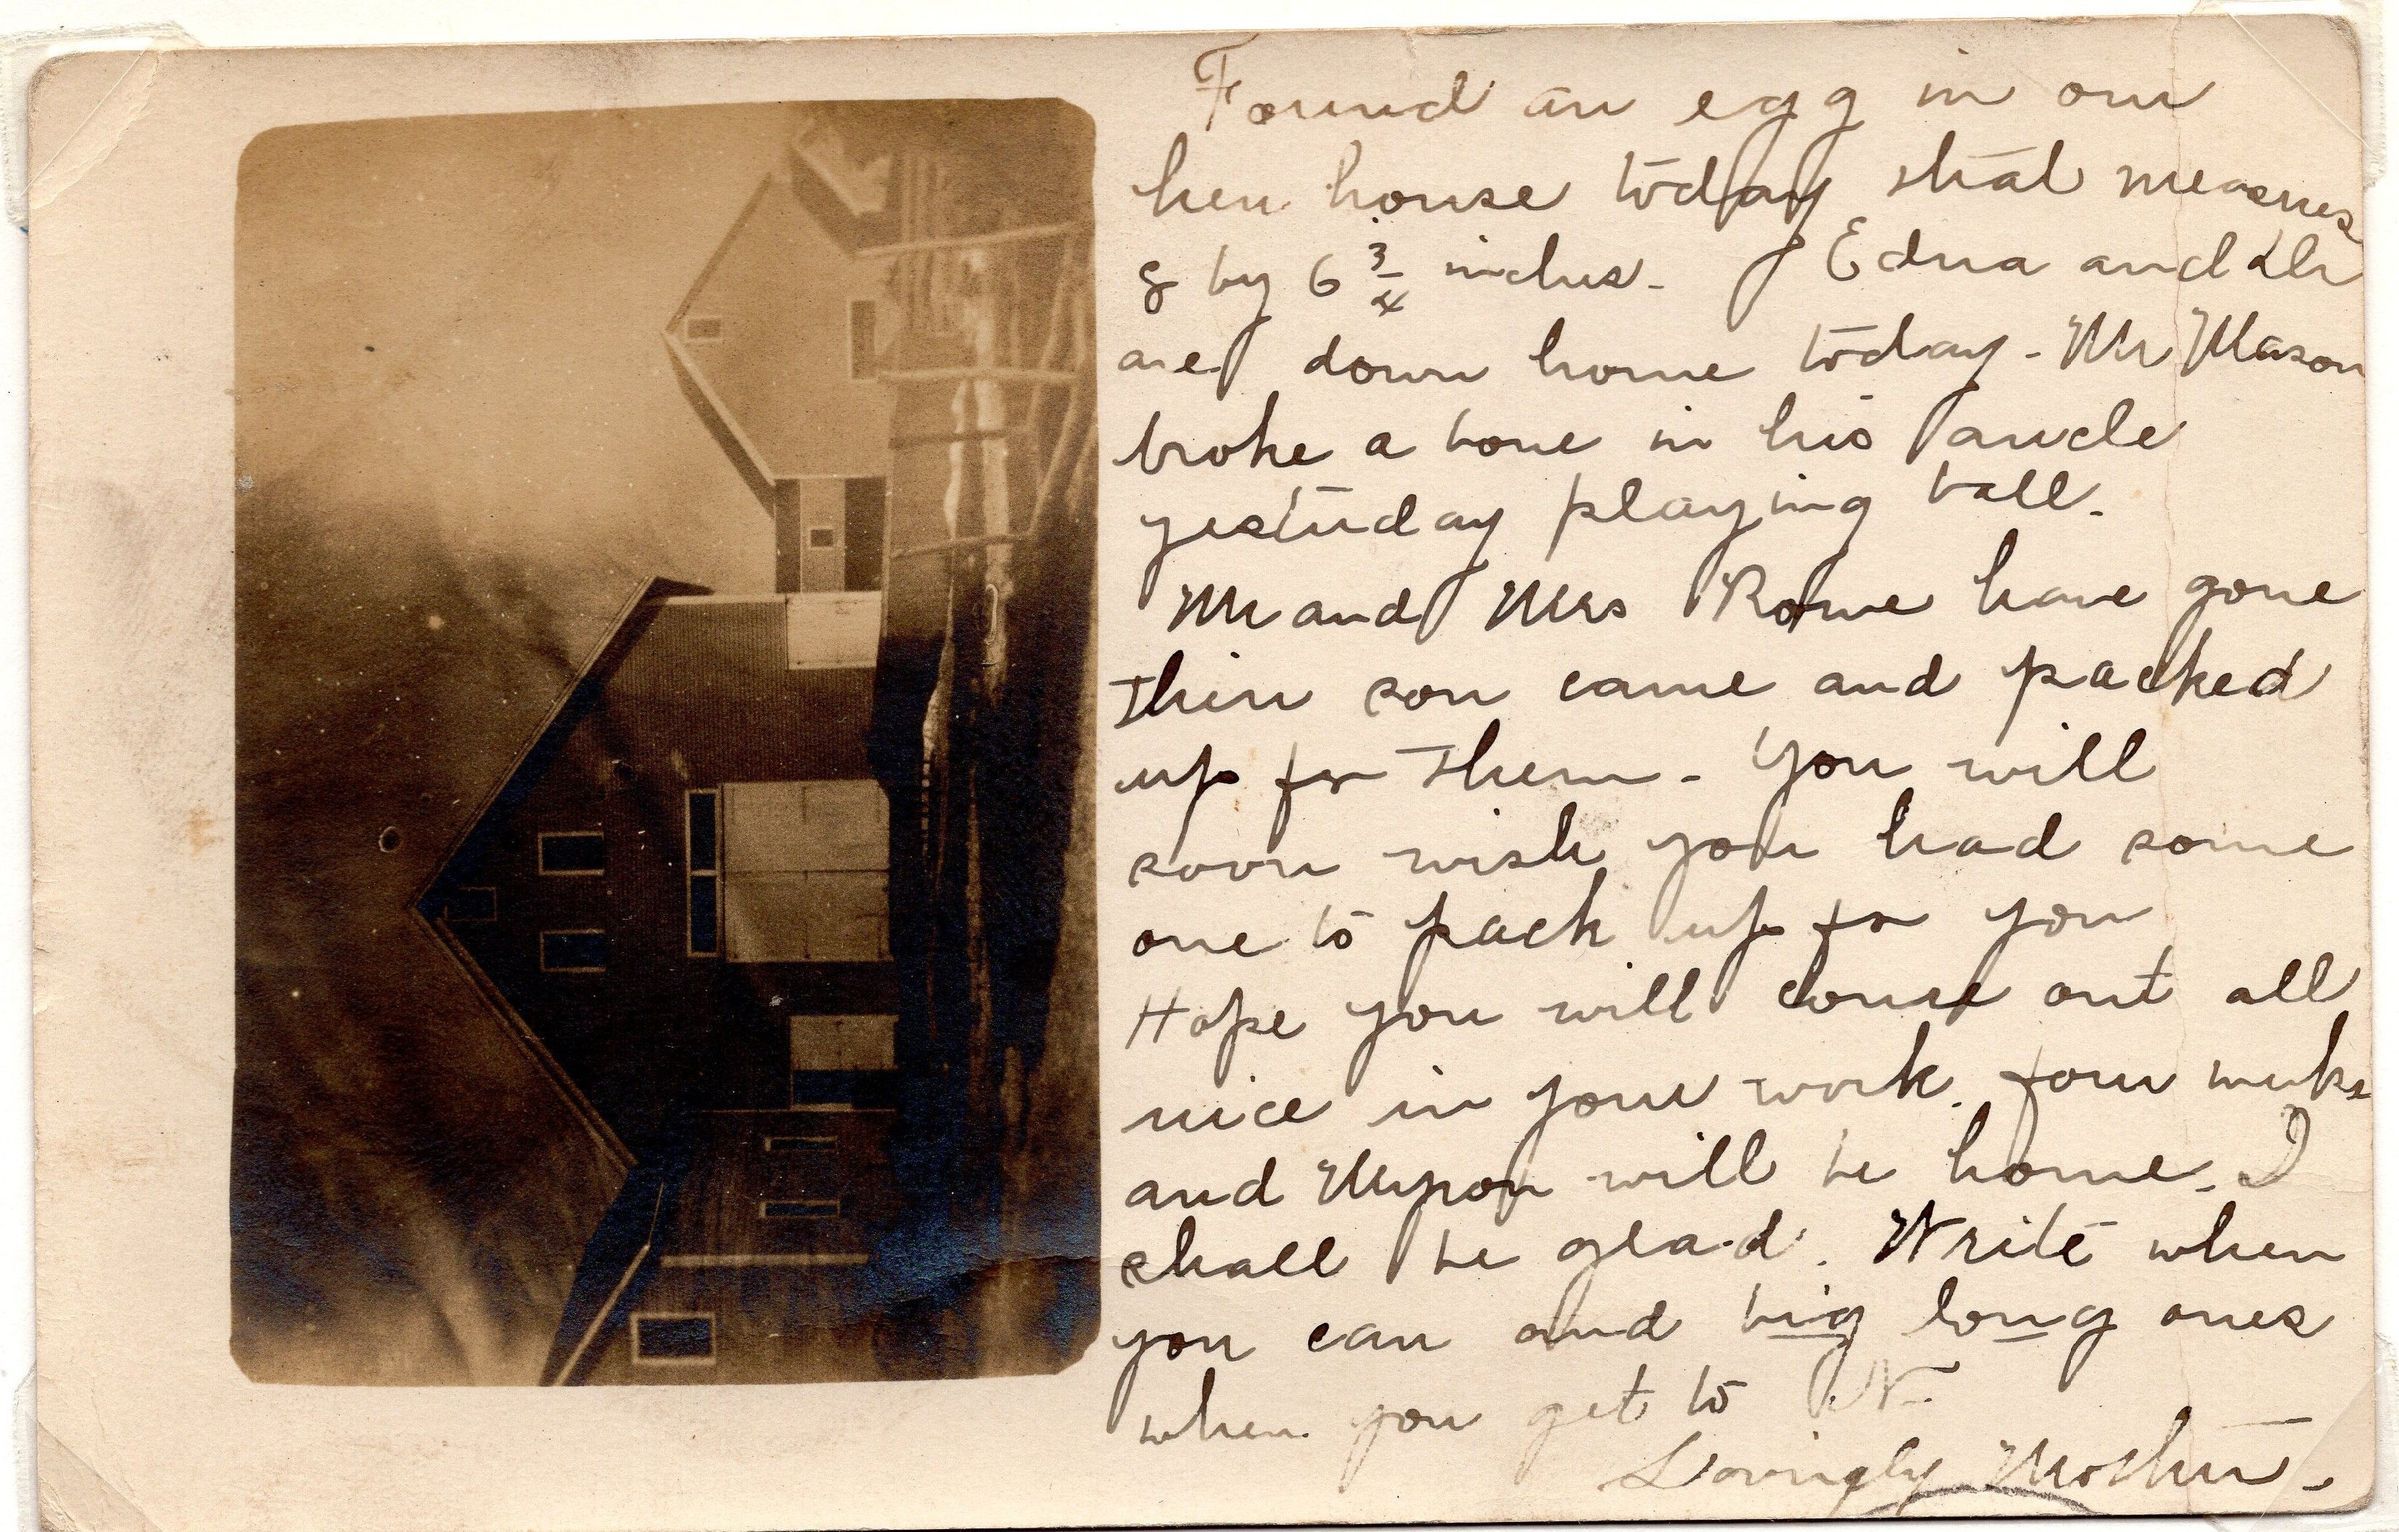 Found an egg in our
hen house today that measures
8 by 6 3/4 inches. Edna and
are down home today - Mr Mason
broke a bone in his ancle
yesterday playing ball.
Mr and Mrs Rowe have gone
their son came and packed
up for them - You will
soon wish you had some
one to pack up for you
Hope you will come out all
nice in your work. four weeks
and Myron will be home. I
shall be glad. Write when
you can and big long ones
when you get to N.
Lovingly Mother -